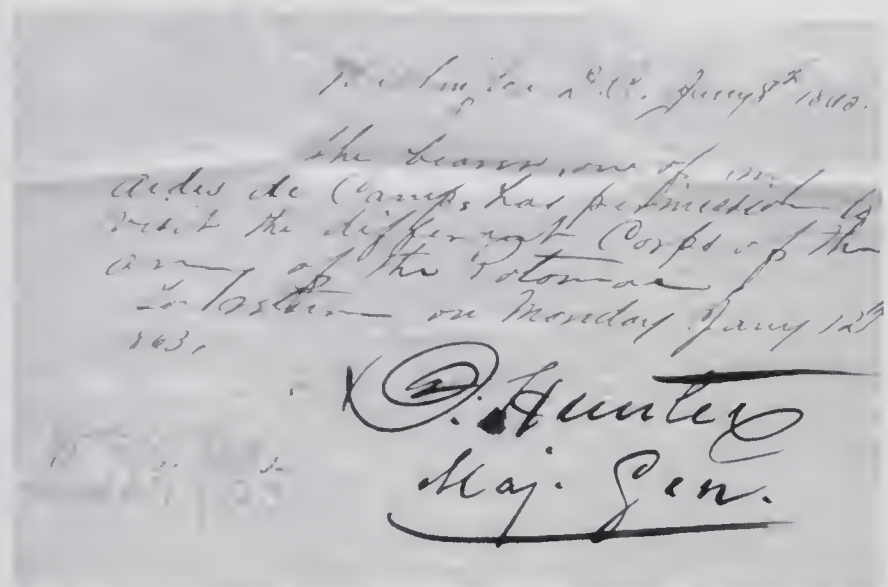 Washington D.C. Jany 8th 1863.
The bearer, one of my
aides de Camp, has permission to
visit the different Corps of the
army of the Potomac
to return on Monday Jany 12th
863,
D. Hunter
Maj. Gen.